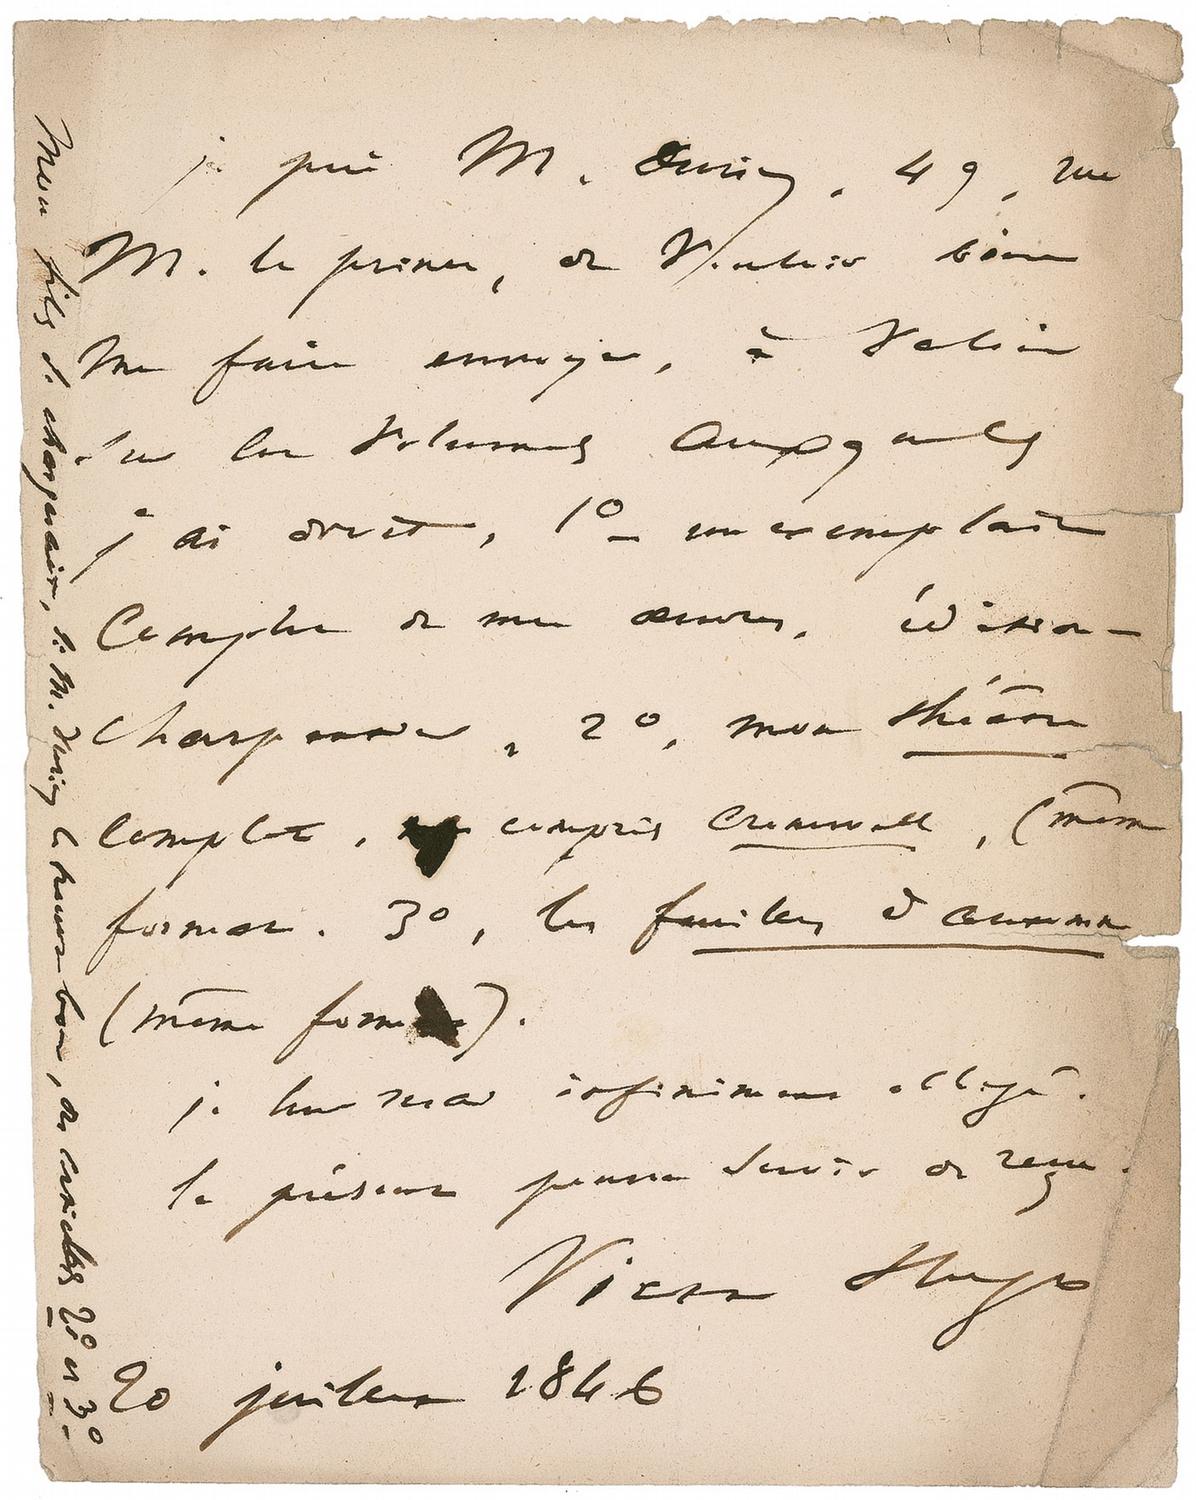 je prie M. Duriez, 49, rue
M. le prince, de vouloir bien
me faire envoyer, à valoir
sur les volumes auxquels
j'ai droit, 1º un exemplaire
complet de mes œuvres, édition
Charpentier, 2º, mon théâtre
complet, compris Cromwell, (même
format. 3º, les feuilles d'automne
(même format).
je lui serai infiniment obligé.
le présent pourra servir de reçu.
Victor Hugo
20 juillet 1846
Mon fils se chargerait, si M. Duriez le trouve bon, des articles 2º et 3º